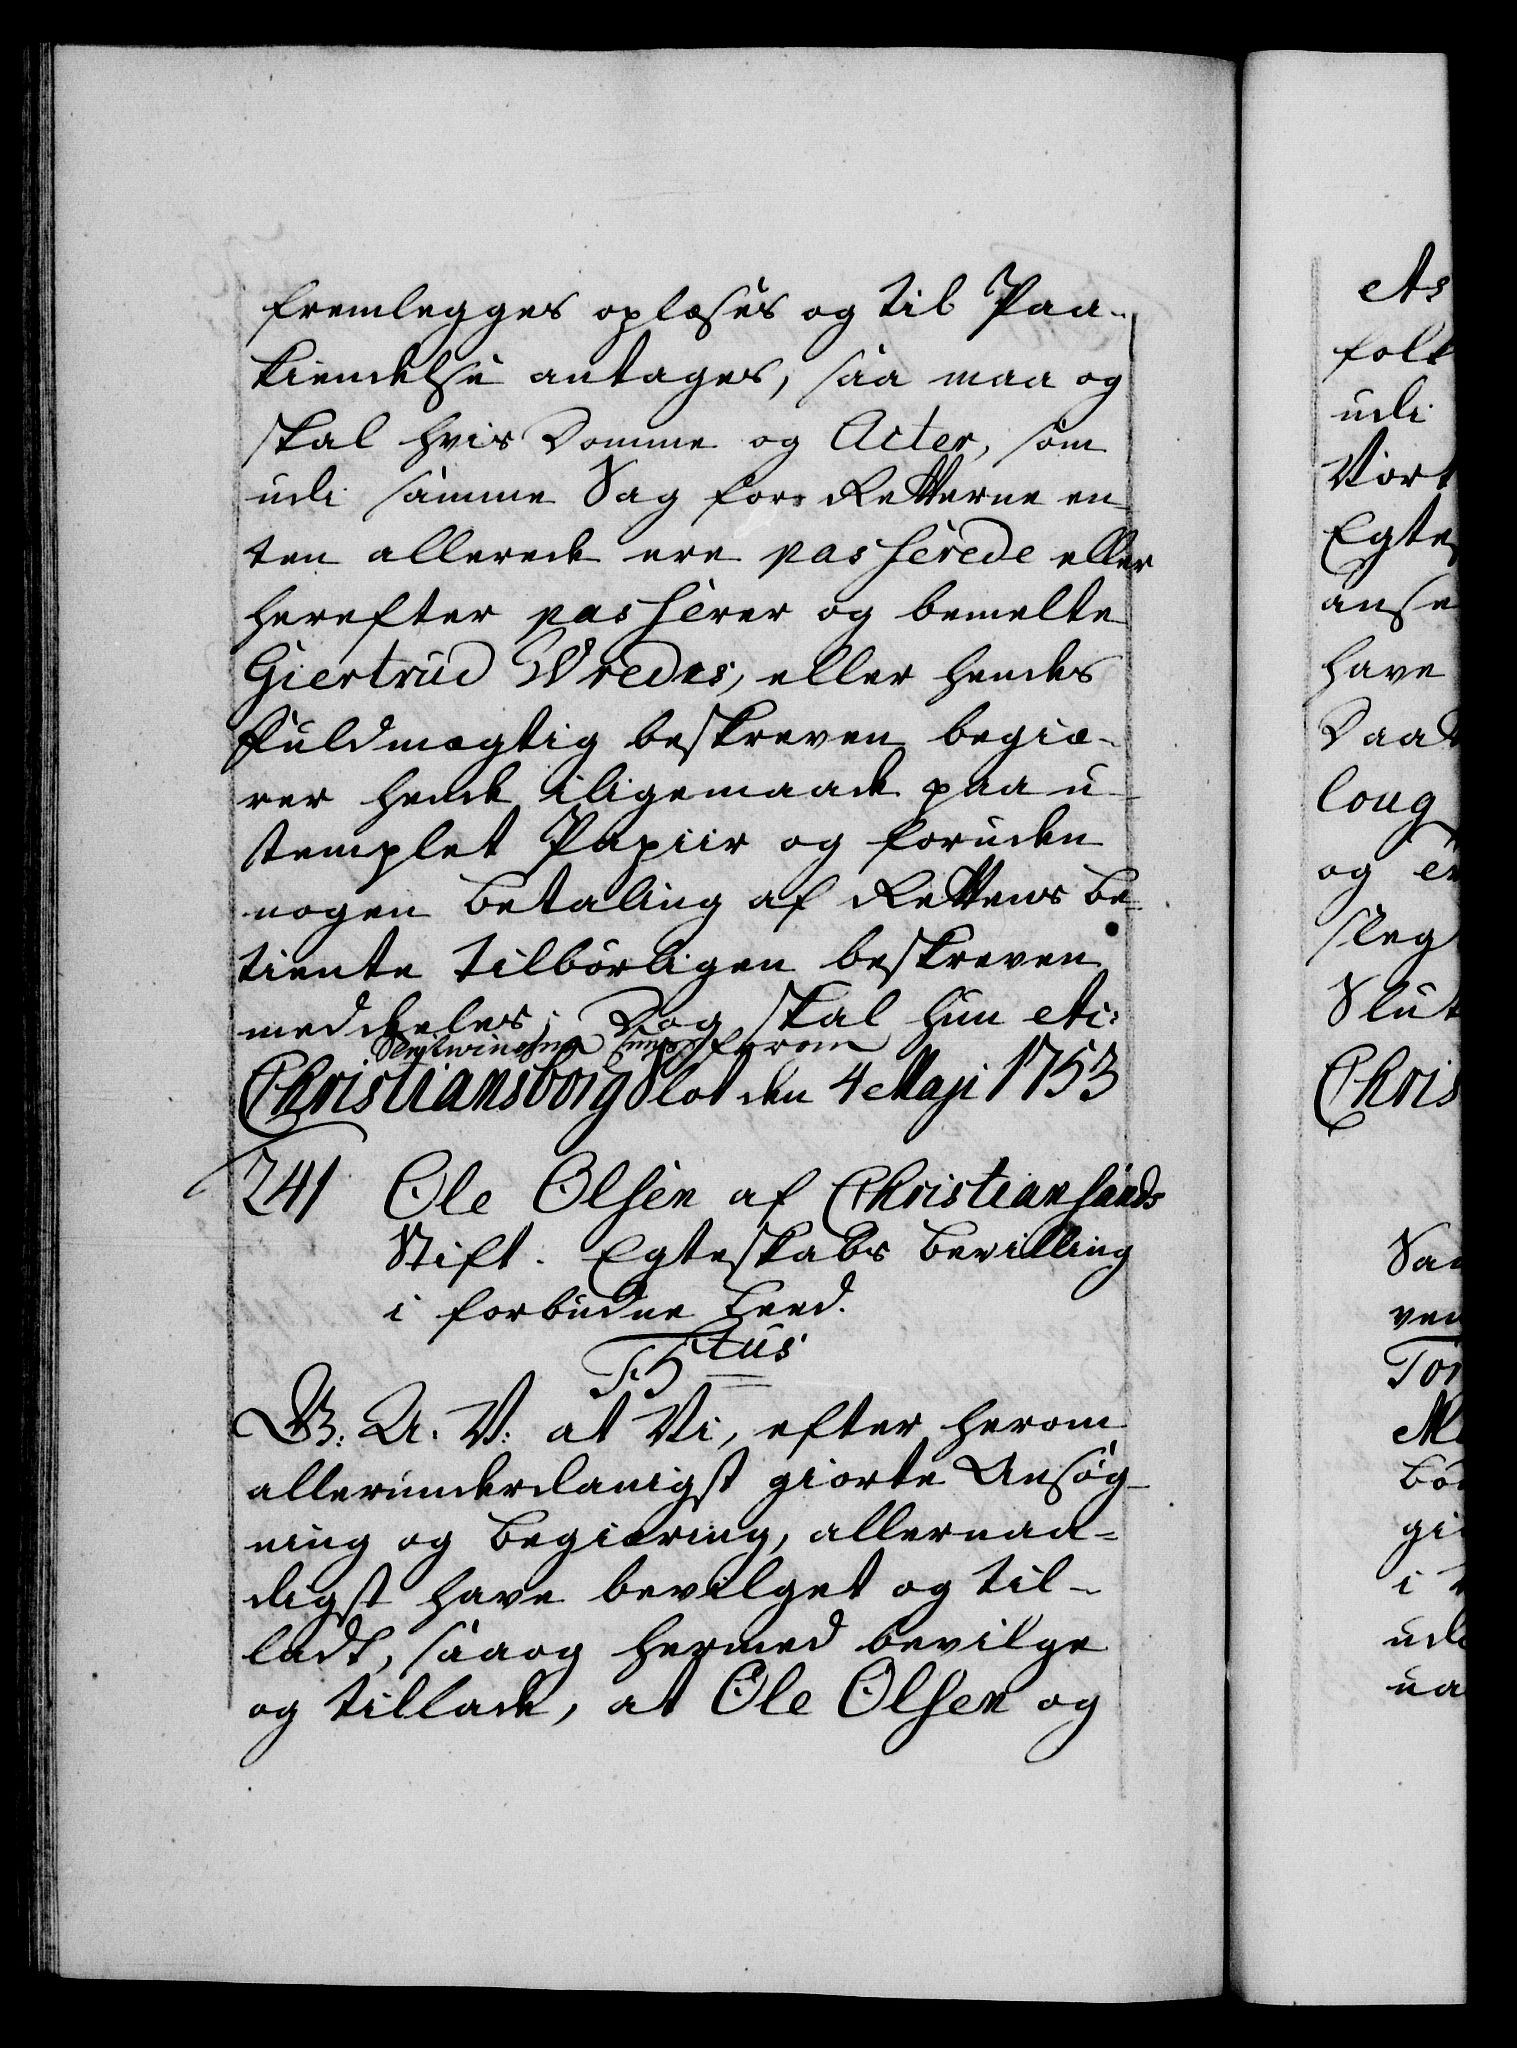 fremlegges oplæses og til Paa-
kiendelse antages, saa maa og
skal hvis Domme og Acter, som
udi samme Sag for Retterne en-
ten allerede ere passerede eller
herefter passerer og bemelte
Giertrud Wredes, eller hendes
Fuldmægtig beskreven begiæ-
rer hende iligemaade paa u-
stemplet Papiir og foruden
nogen Betaling af Rettens Be-
tiente tilbørligen beskreven
meddeeles; Dog skal hun etc:
herom
Christiansborg Slot den 4 Maji 1753
241 Ole Olsen af Christiansands
Stift. Egteskabs Bevilling
i forbudne Leed.
F5tus
G: A. V: at Vi, efter herom
allerunderdanigst giorte Ansøg-
ning og Begiæring, allernaa-
digst have bevilget og til-
ladt, saa og hermed bevilge
og tillade, at Ole Olsen og
As
folk
udi
Vort
Egte
anse
have
Daad
loug
og
Sleg
Slut
Chris
ven
Tor
gi
i
udi